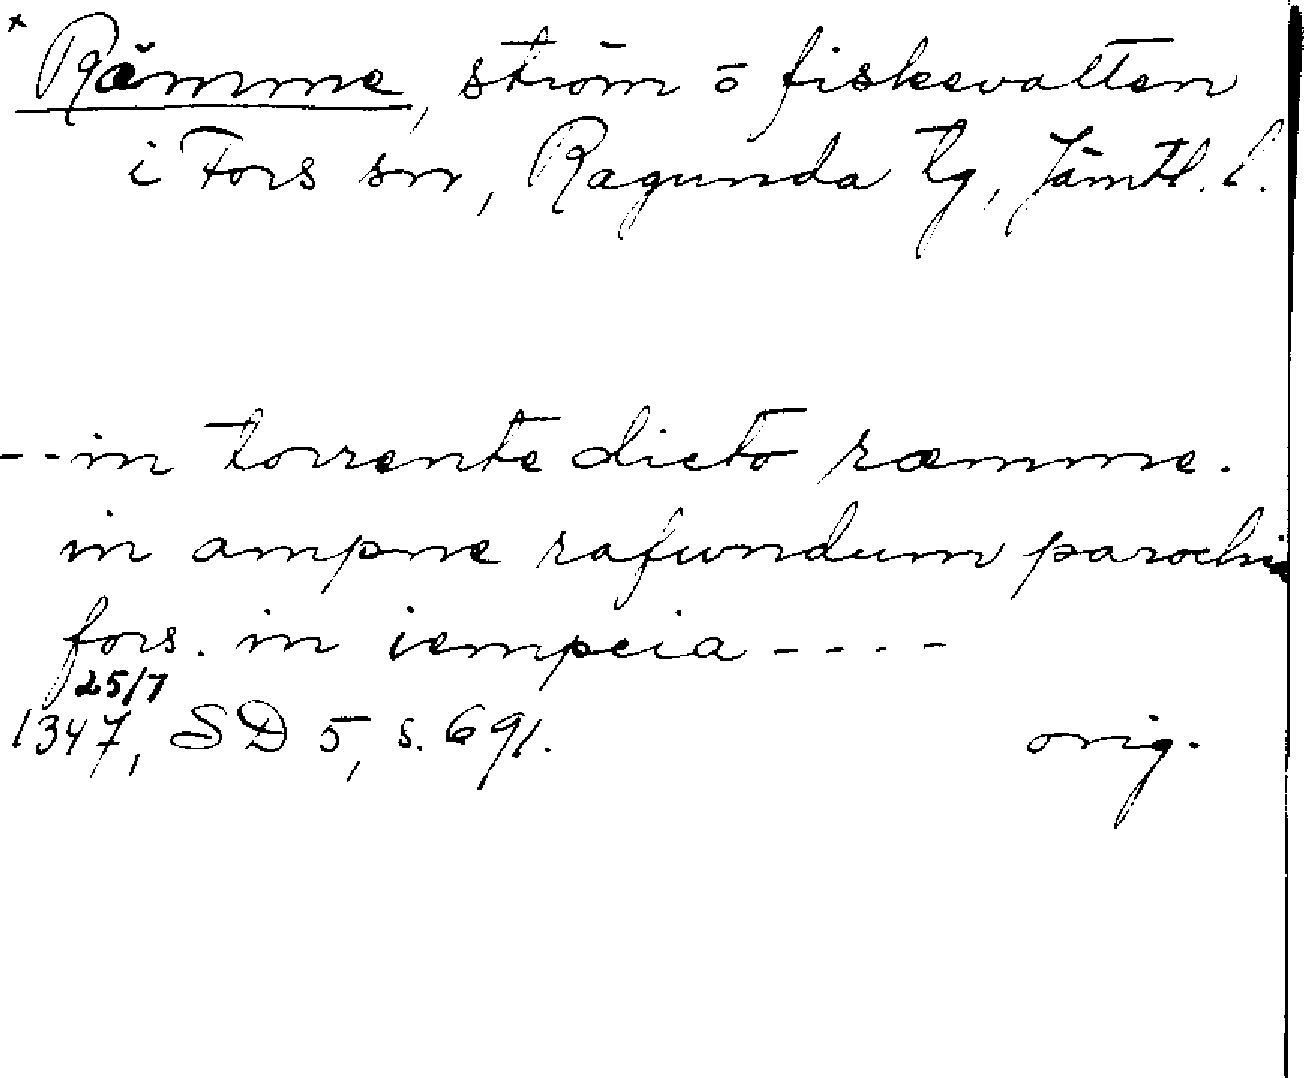 * Rämme, ström o fiskevatten
i Fors sn, Ragunda tg, Jämtl. l.
-- in torrente dicto ræmme.
in ampne rafundum parochi
fors. in iempcia ----
25/7
1347, SD 5, s. 691. orig.